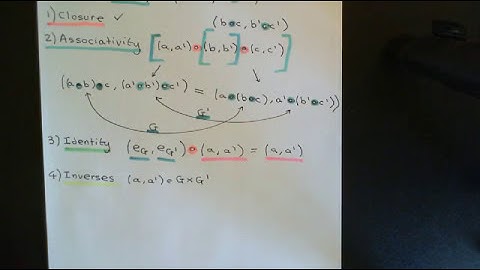 1) Closure ✓
(b•c, b'•c')
2) Associativity [(a,a')•(b,b')]•(c,c')
(a•b)•c, (a'•b')•c') = (a•(b•c), a'•(b'•c'))
G G'
3) Identity (e_G, e_G')•(a,a') = (a,a')
4) Inverses (a,a') ∈ G×G'